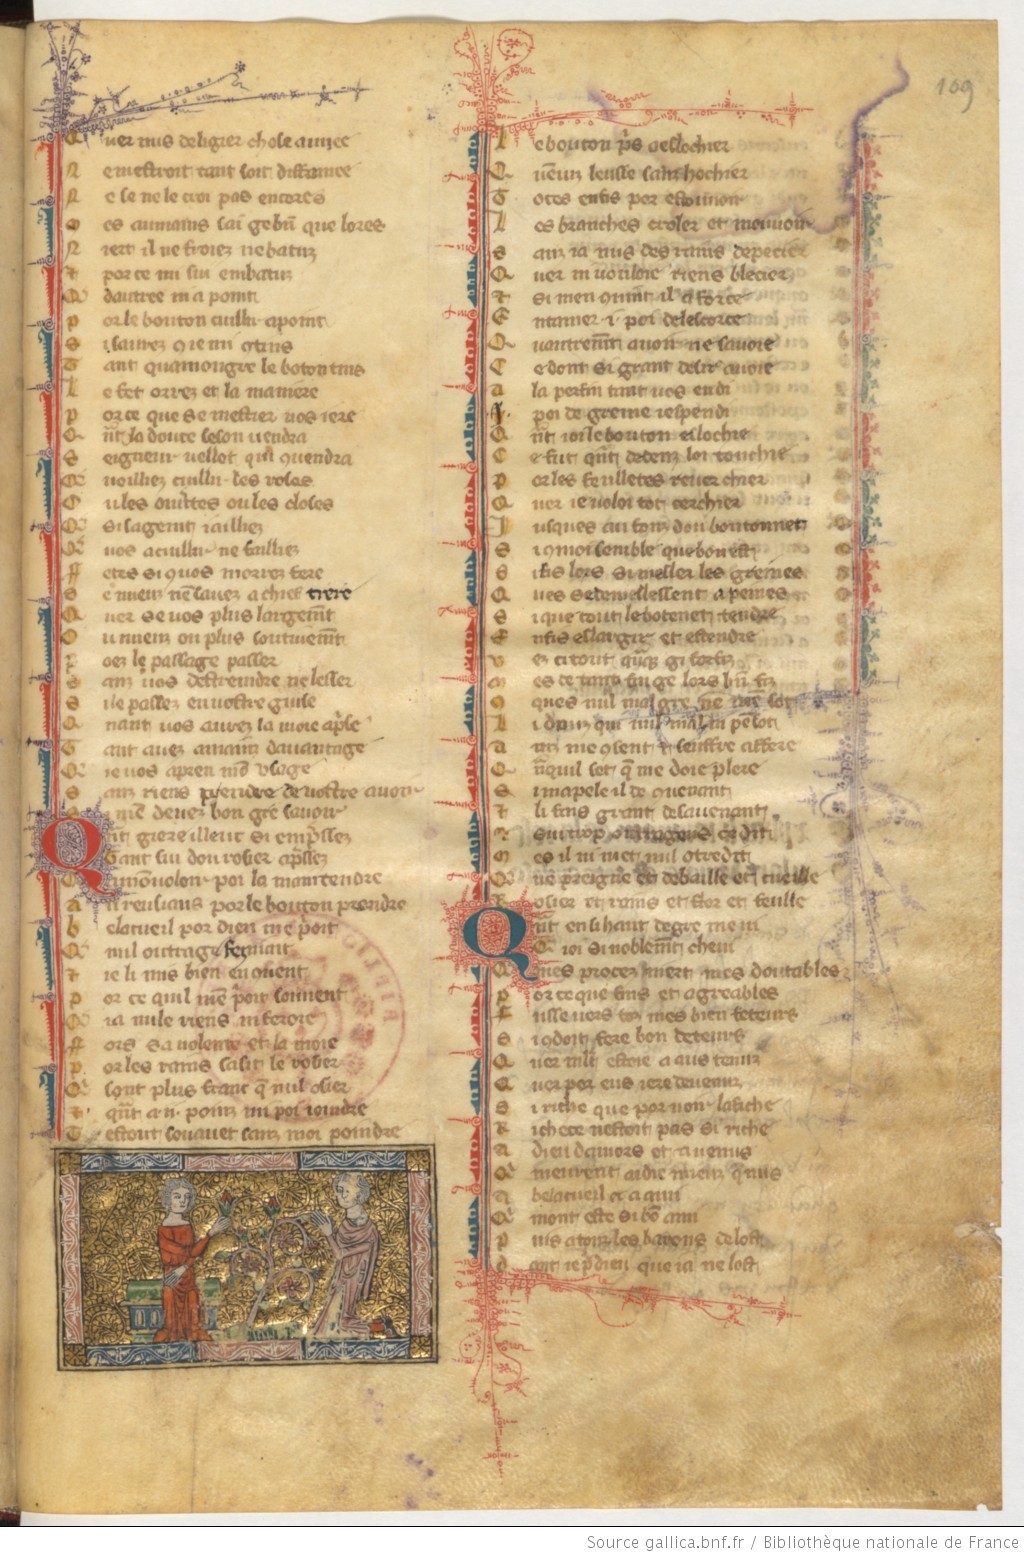 169
Q uer mis deligier chose auuec
N emestroit tant soit distance
N e se ne le croi pas encores
por ce mi sui embatuz
dautree mapoint
P or le bouton cuillir apoint
S i saurez que mi
T ant quamongre le boton tins
L e fet orrez et la maniere
P or ce que se mestier vos iere
Q nt la douce seson vendra
S eigneur vellet
cuillir les roses
O u les ouvertes ou les closes
Q si sagement i ailliez
Q vos a cuillir ne failliez
F etes si quos morrez fere
S e miex nen sauez a chief trere
Q uer se vos plus largement
O u miex ou plus soutiuement
P oez le passage passer
S anz vos destreindre ne lesser
S i le passez en vostre guise
Q uant vos aurez la moie aprise
T ant auez amains dauantage
Q ie vos apren mon vsage
S anz riens prendre de vostre auoir
S i men deuez bon gre sauoir
Q nt giere illeuc si empressez
T ant fui dou rosier apressez
Q a mon uoloir poi la main tendre
A us reusians por le bouton prendre
B elacueil por dieu me prioit
Q nul outrage fet niait
t ie li mis bien en couent
P or ce quil men prioit souuent
Q ia nule riens ni feroie
F ors sa volente et la moie
P or les rains saisi le rosier
Q sont plus franc q nul osier
t qnt a .ii. poinz mi poi ioindre
T estout souauet sanz moi poindre
L e bouton pris a eslochier
Q ueuiz leusse sanz hochier
T otes enfis por estouuoir
L es branches croler et mouuoir
S anz ia nus des rains depecier
Q uer ni vouloie riens blecier
t si men quint il a force
E ntamer .i. poi de lescorce
Q uautrement auoir ne sauoie
C e dont si grant desir auoie
A la perfin tant vos en di
.i. poi de greine i espandi
Q nt ioi le bouton eslochie
C e fut qnt dedenz loi touchie
P or les feulletes reuerchier
Q uer ie voloi tot cerchier
J usques au fonz dou boutonnet
S i qmoi semble que bon est
S i fis lors si meller les greines
Q ues se demellessent a peines
S i que tout le botonet tendre
E n fis eslargir et estendre
V ez ci tout qnq gi forfiz
M es de tant fui ge lors bien fiz
Q ues nul mal gre ne men sot
L i douz qui nul mal ni pensot
A inz me osent et seuffre a ffere
Q nquil set q me doie plere
S i mapele il de couenant
t li fais grant desauenant
sui trop outrageus ce dit
M es il ni met nul contredit
Q ne preigne et debaille et cueille
R osier et rains et flor et feuille
Q nt en si haut degre me ui
Q ioi si noblement cheui
Q mes procez niert mes doutables
P or ce que fins et agreables
F usse vers toz mes bien feteurs
S i q doit fere bon deteurs
Q uer mlt estoie a aus tenuz
Q uer por eus iere deuenuz
S i riche que por uoir lafiche
R ichece nestoit pas si riche
A dieu damors et a uenus
Q meurent aidie miex q nus
A belacueil
Q mont este si bon ami
P uis a touz les barons de lost
d ont ie pri dieu que ia ne lost
Source gallica.bnf.fr / Bibliothèque nationale de France